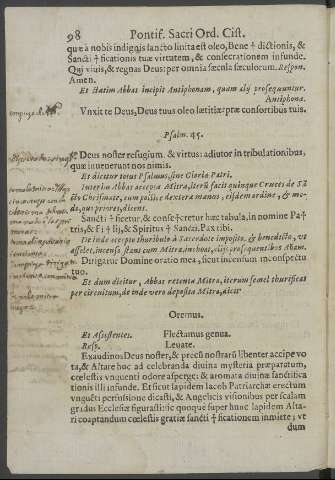 98 Pontif. Sacri Ord. Cist.
quę à nobis indignis sancto linita est oleo, Bene † dictionis, &
Sancti † ficationis tuæ virtutem, & consecrationem infunde.
Qui viuis, & regnas Deus: per omnia sæcula sæculorum. Respon.
Amen.
Et statim Abbas incipit Antiphonam, quam alij prosequuntur.
Antiphona.
Vnxit te Deus, Deus tuus oleo lætitiæ: præ consortibus tuis.
Psalm. 45.
Deus noster refugium, & virtus: adiutor in tribulationibus,
quæ inuenerunt nos nimis.
Et dicitur totus Psalmus, sine Gloria Patri.
Interim Abbas accepta Mitra, iterũ facit quinque Cruces de
cto Chrismate, cum pollice dexteræ manus, eisdem ordine, & mo-
do, quo priores, dicens.
Sancti † ficetur, & conse † cretur hæc tabula, in nomine Pa †
tris, & Fi † lij, & Spiritus † Sancti. Pax tibi.
De inde accepto thuribulo à Sacerdote imposito, & benedicto, vt
assolet, incensũ stans cum Mitra imponit, alijs prosequentibus Anam.
Dirigatur Domine oratio mea, sicut incensum in conspectu
tuo.
Et dum dicitur, Abbas retenta Mitra, iterum semel thurificat
per circuitum, de inde vero deposita Mitra, dicit
Oremus.
Et Assistentes. Flectamus genua.
Resp. Leuate.
Exaudinos Deus noster, & precũ nostrarũ libenter accipe vo
ta, & Altare hoc ad celebranda diuina mysteria præparatum,
cœlestis vnguenti odore asperget: & aromata diuinæ sanctifica
tionis illi infunde. Et sicut lapidem Iacob Patriarchæ erectum
vnguẽti perfusione dicasti, & Angelicis visionibus per scalam
gradus Ecclesiæ figurasti: sic quoque super hunc lapidem Alta-
ri coaptandum cœlestis gratiæ sancti † ficationem inmitte; vt
dum